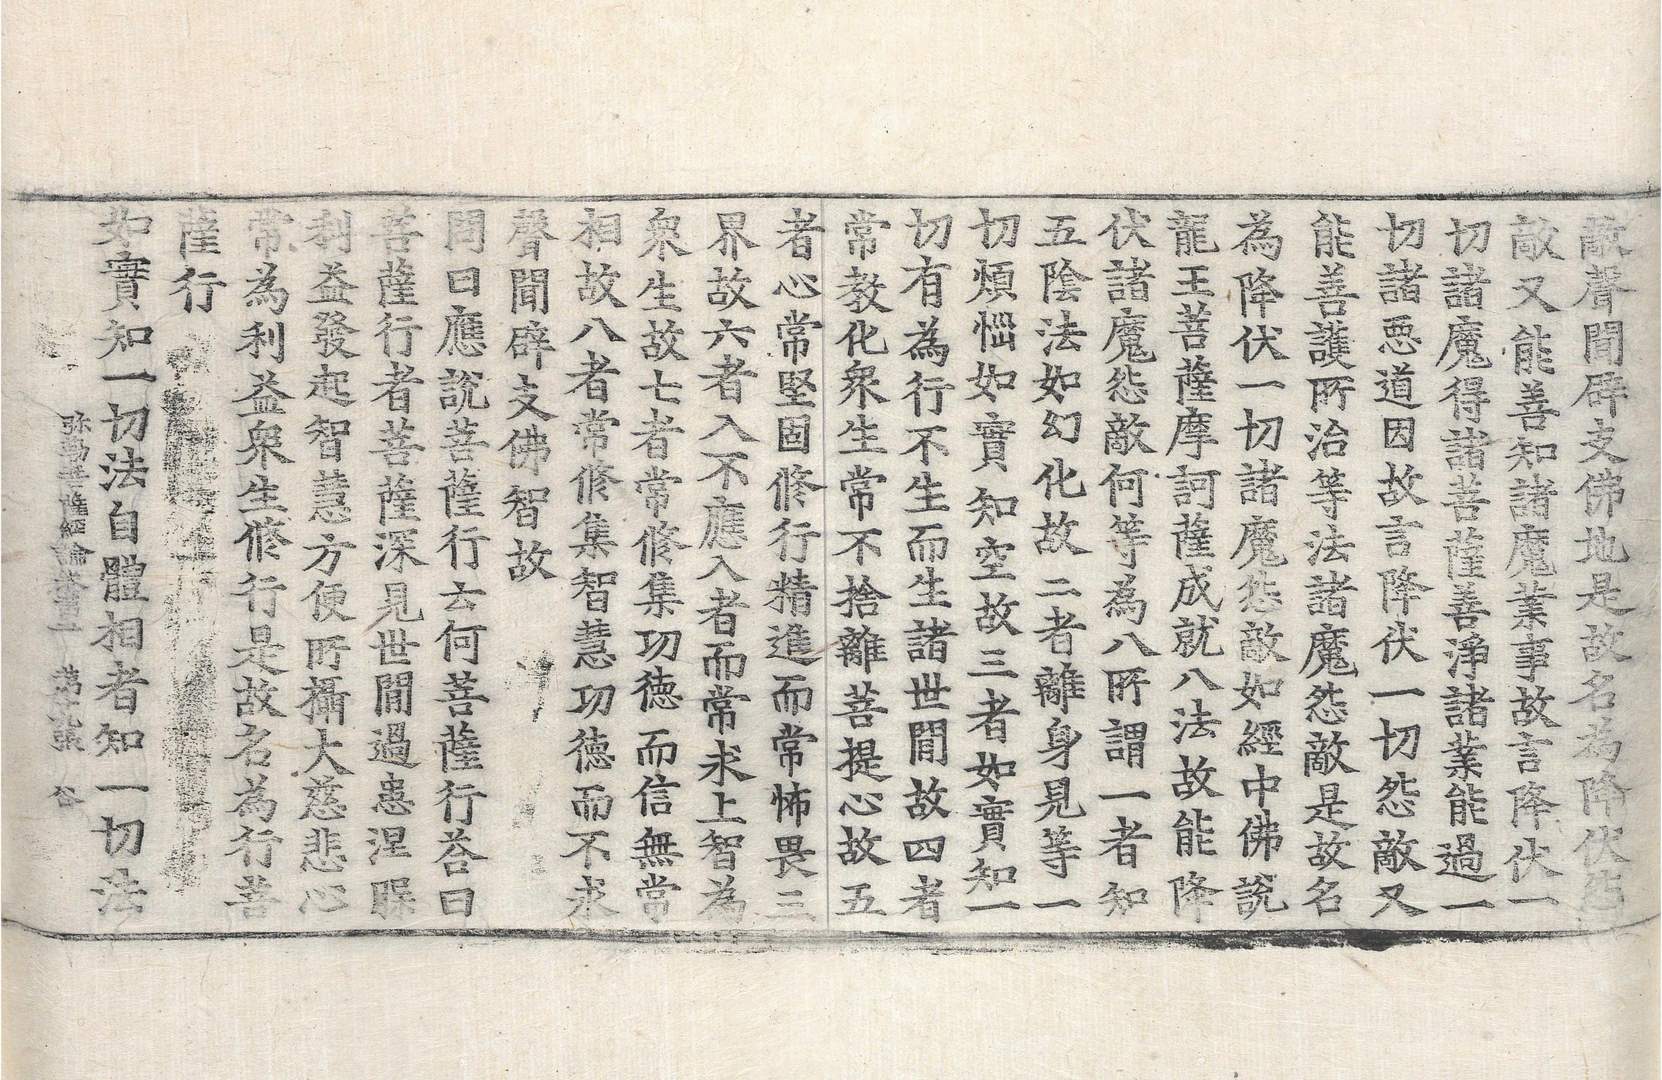 敵聲聞辟支佛地是故名為降伏怨
敵又能善知諸魔業事故言降伏一
切諸魔得諸菩薩善淨諸業能過一
切諸惡道因故言降伏一切怨敵又
能善護所治等法諸魔怨敵是故名
為降伏一切諸魔怨敵如經中佛說
龍王菩薩摩訶薩成就八法故能降
伏諸魔怨敵何等為八所謂一者知
五陰法如幻化故二者離身見等一
切煩惱如實知空故三者如實知一
切有為行不生而生諸世間故四者
常教化衆生常不捨離菩提心故五
者心常堅固修行精進而常怖畏三
界故六者入不應入者而常求上智為
衆生故七者常修集功德而信無常
相故八者常修集智慧功德而不求
聲聞辟支佛智故
問曰應說菩薩行云何菩薩行荅曰
菩薩行者菩薩深見世間過患涅槃
利益發起智慧方便所攝大慈悲心
常為利益衆生修行是故名為行菩
薩行
如實知一切法自體相者知一切法
弥勒菩薩經論卷第一 第 張 谷